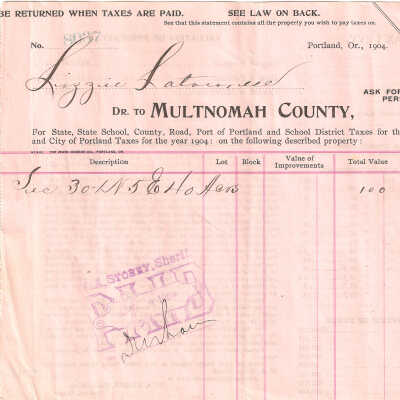 BE RETURNED WHEN TAXES ARE PAID. SEE LAW ON BACK.
See that this statement contains all the property you wish to pay taxes on.
No. Portland, Or., 1904.
Lizzie
ASK FOR
PERS
DR. TO MULTNOMAH COUNTY,
For State, State School, County, Road, Port of Portland and School District Taxes for th
and City of Portland Taxes for the year 1904: on the following described property:
Description Lot Block Value of Improvements Total Value
Sec 30-1N 5E 40 Acrs 100
STOREY, Sheriff
PAID